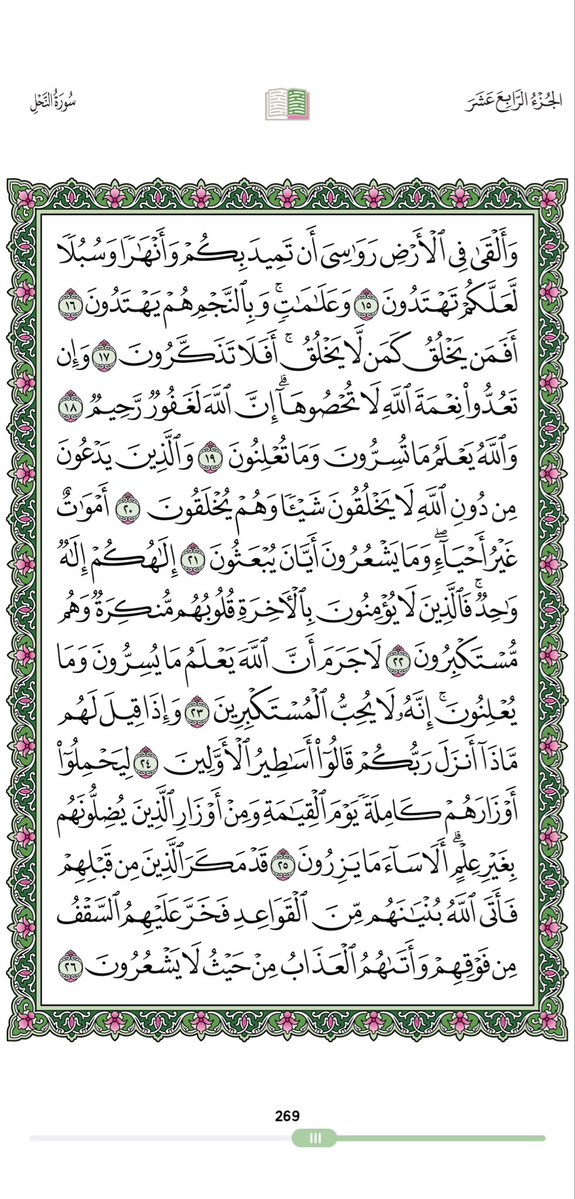 الجُزْءُ الرَّابِعَ عَشَرَ
سُورَةُ النَّحْلِ
وَأَلْقَىٰ فِي ٱلْأَرْضِ رَوَٰسِيَ أَن تَمِيدَ بِكُمْ وَأَنْهَٰرًا وَسُبُلًا
لَّعَلَّكُمْ تَهْتَدُونَ ١٥ وَعَلَٰمَٰتٍۚ وَبِٱلنَّجْمِ هُمْ يَهْتَدُونَ ١٦
أَفَمَن يَخْلُقُ كَمَن لَّا يَخْلُقُۚ أَفَلَا تَذَكَّرُونَ ١٧ وَإِن
تَعُدُّواْ نِعْمَةَ ٱللَّهِ لَا تُحْصُوهَآۗ إِنَّ ٱللَّهَ لَغَفُورٌ رَّحِيمٌ ١٨
وَٱللَّهُ يَعْلَمُ مَا تُسِرُّونَ وَمَا تُعْلِنُونَ ١٩ وَٱلَّذِينَ يَدْعُونَ
مِن دُونِ ٱللَّهِ لَا يَخْلُقُونَ شَيْـًٔا وَهُمْ يُخْلَقُونَ ٢٠ أَمْوَٰتٌ
غَيْرُ أَحْيَآءٍۖ وَمَا يَشْعُرُونَ أَيَّانَ يُبْعَثُونَ ٢١ إِلَٰهُكُمْ إِلَٰهٌ
وَٰحِدٌۚ فَٱلَّذِينَ لَا يُؤْمِنُونَ بِٱلْأٓخِرَةِ قُلُوبُهُم مُّنكِرَةٌ وَهُم
مُّسْتَكْبِرُونَ ٢٢ لَا جَرَمَ أَنَّ ٱللَّهَ يَعْلَمُ مَا يُسِرُّونَ وَمَا
يُعْلِنُونَۚ إِنَّهُۥ لَا يُحِبُّ ٱلْمُسْتَكْبِرِينَ ٢٣ وَإِذَا قِيلَ لَهُم
مَّاذَآ أَنزَلَ رَبُّكُمْ قَالُوٓاْ أَسَٰطِيرُ ٱلْأَوَّلِينَ ٢٤ لِيَحْمِلُوٓاْ
أَوْزَارَهُمْ كَامِلَةً يَوْمَ ٱلْقِيَٰمَةِ وَمِنْ أَوْزَارِ ٱلَّذِينَ يُضِلُّونَهُم
بِغَيْرِ عِلْمٍۗ أَلَا سَآءَ مَا يَزِرُونَ ٢٥ قَدْ مَكَرَ ٱلَّذِينَ مِن قَبْلِهِمْ
فَأَتَى ٱللَّهُ بُنْيَٰنَهُم مِّنَ ٱلْقَوَاعِدِ فَخَرَّ عَلَيْهِمُ ٱلسَّقْفُ
مِن فَوْقِهِمْ وَأَتَىٰهُمُ ٱلْعَذَابُ مِنْ حَيْثُ لَا يَشْعُرُونَ ٢٦
269